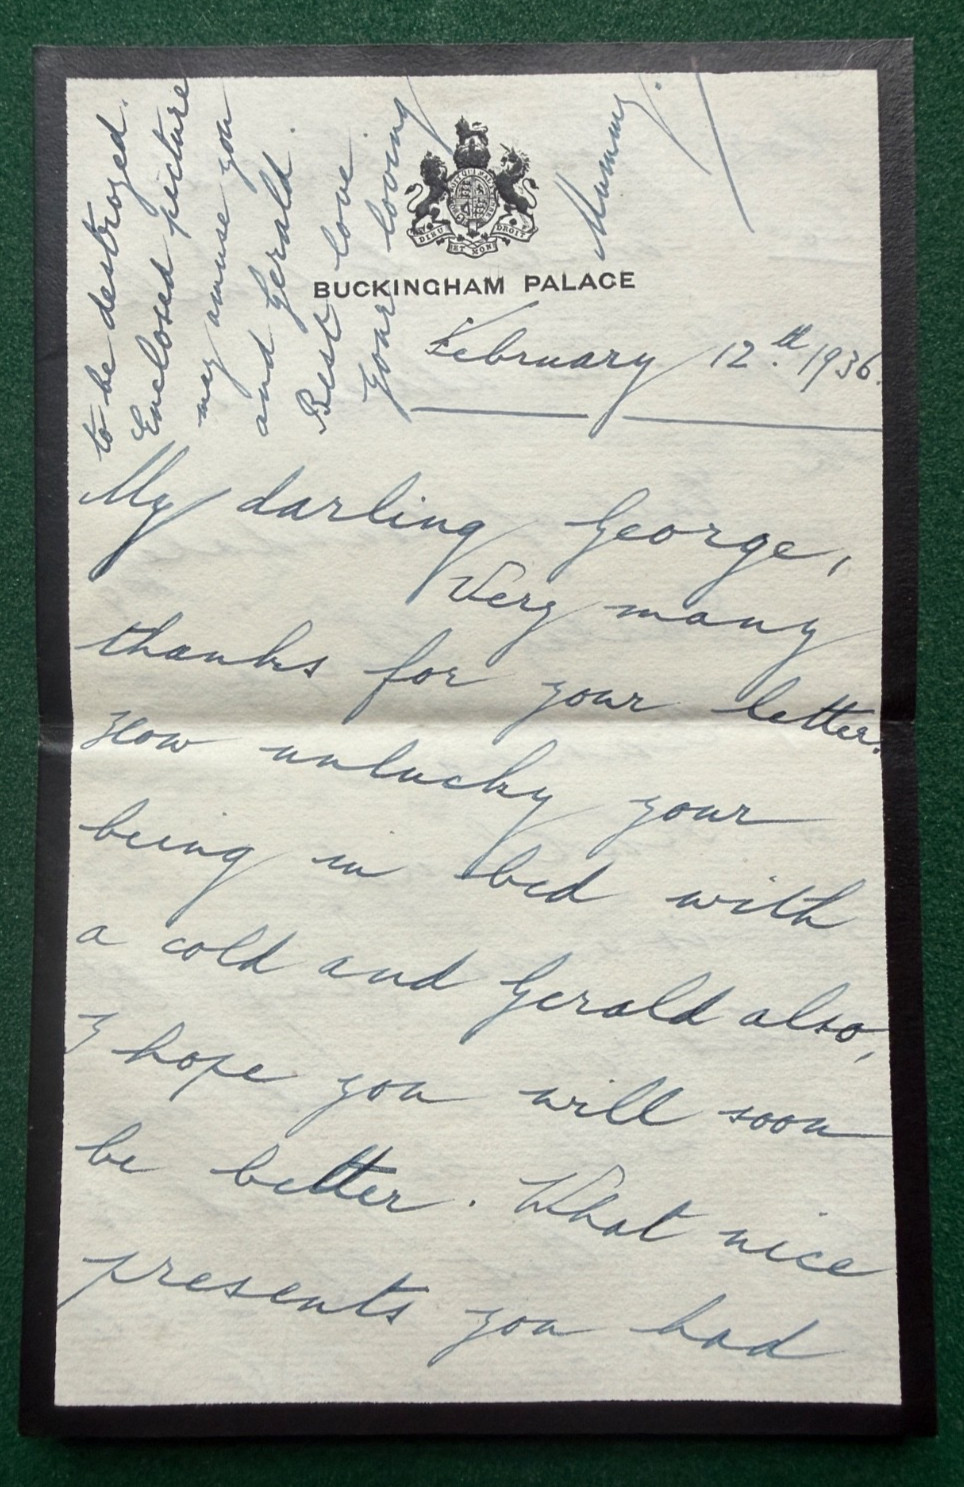 to be destroyed.
Enclosed picture
may amuse you
and Gerald.
Best love
your loving
Mummy.
DIEU ET MON DROIT
BUCKINGHAM PALACE
February 12th. 1936.
My darling George,
Very many
thanks for your letter.
How unlucky your
being in bed with
a cold and Gerald also,
I hope you will soon
be better. What nice
presents you had